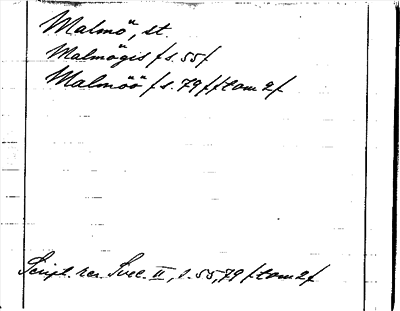 Malmö, st.
Malmögis /s. 55/
Malmöö /s. 79 / / tom 2/
Script. rer. Svec. II, s. 55, 79 / tom 2/